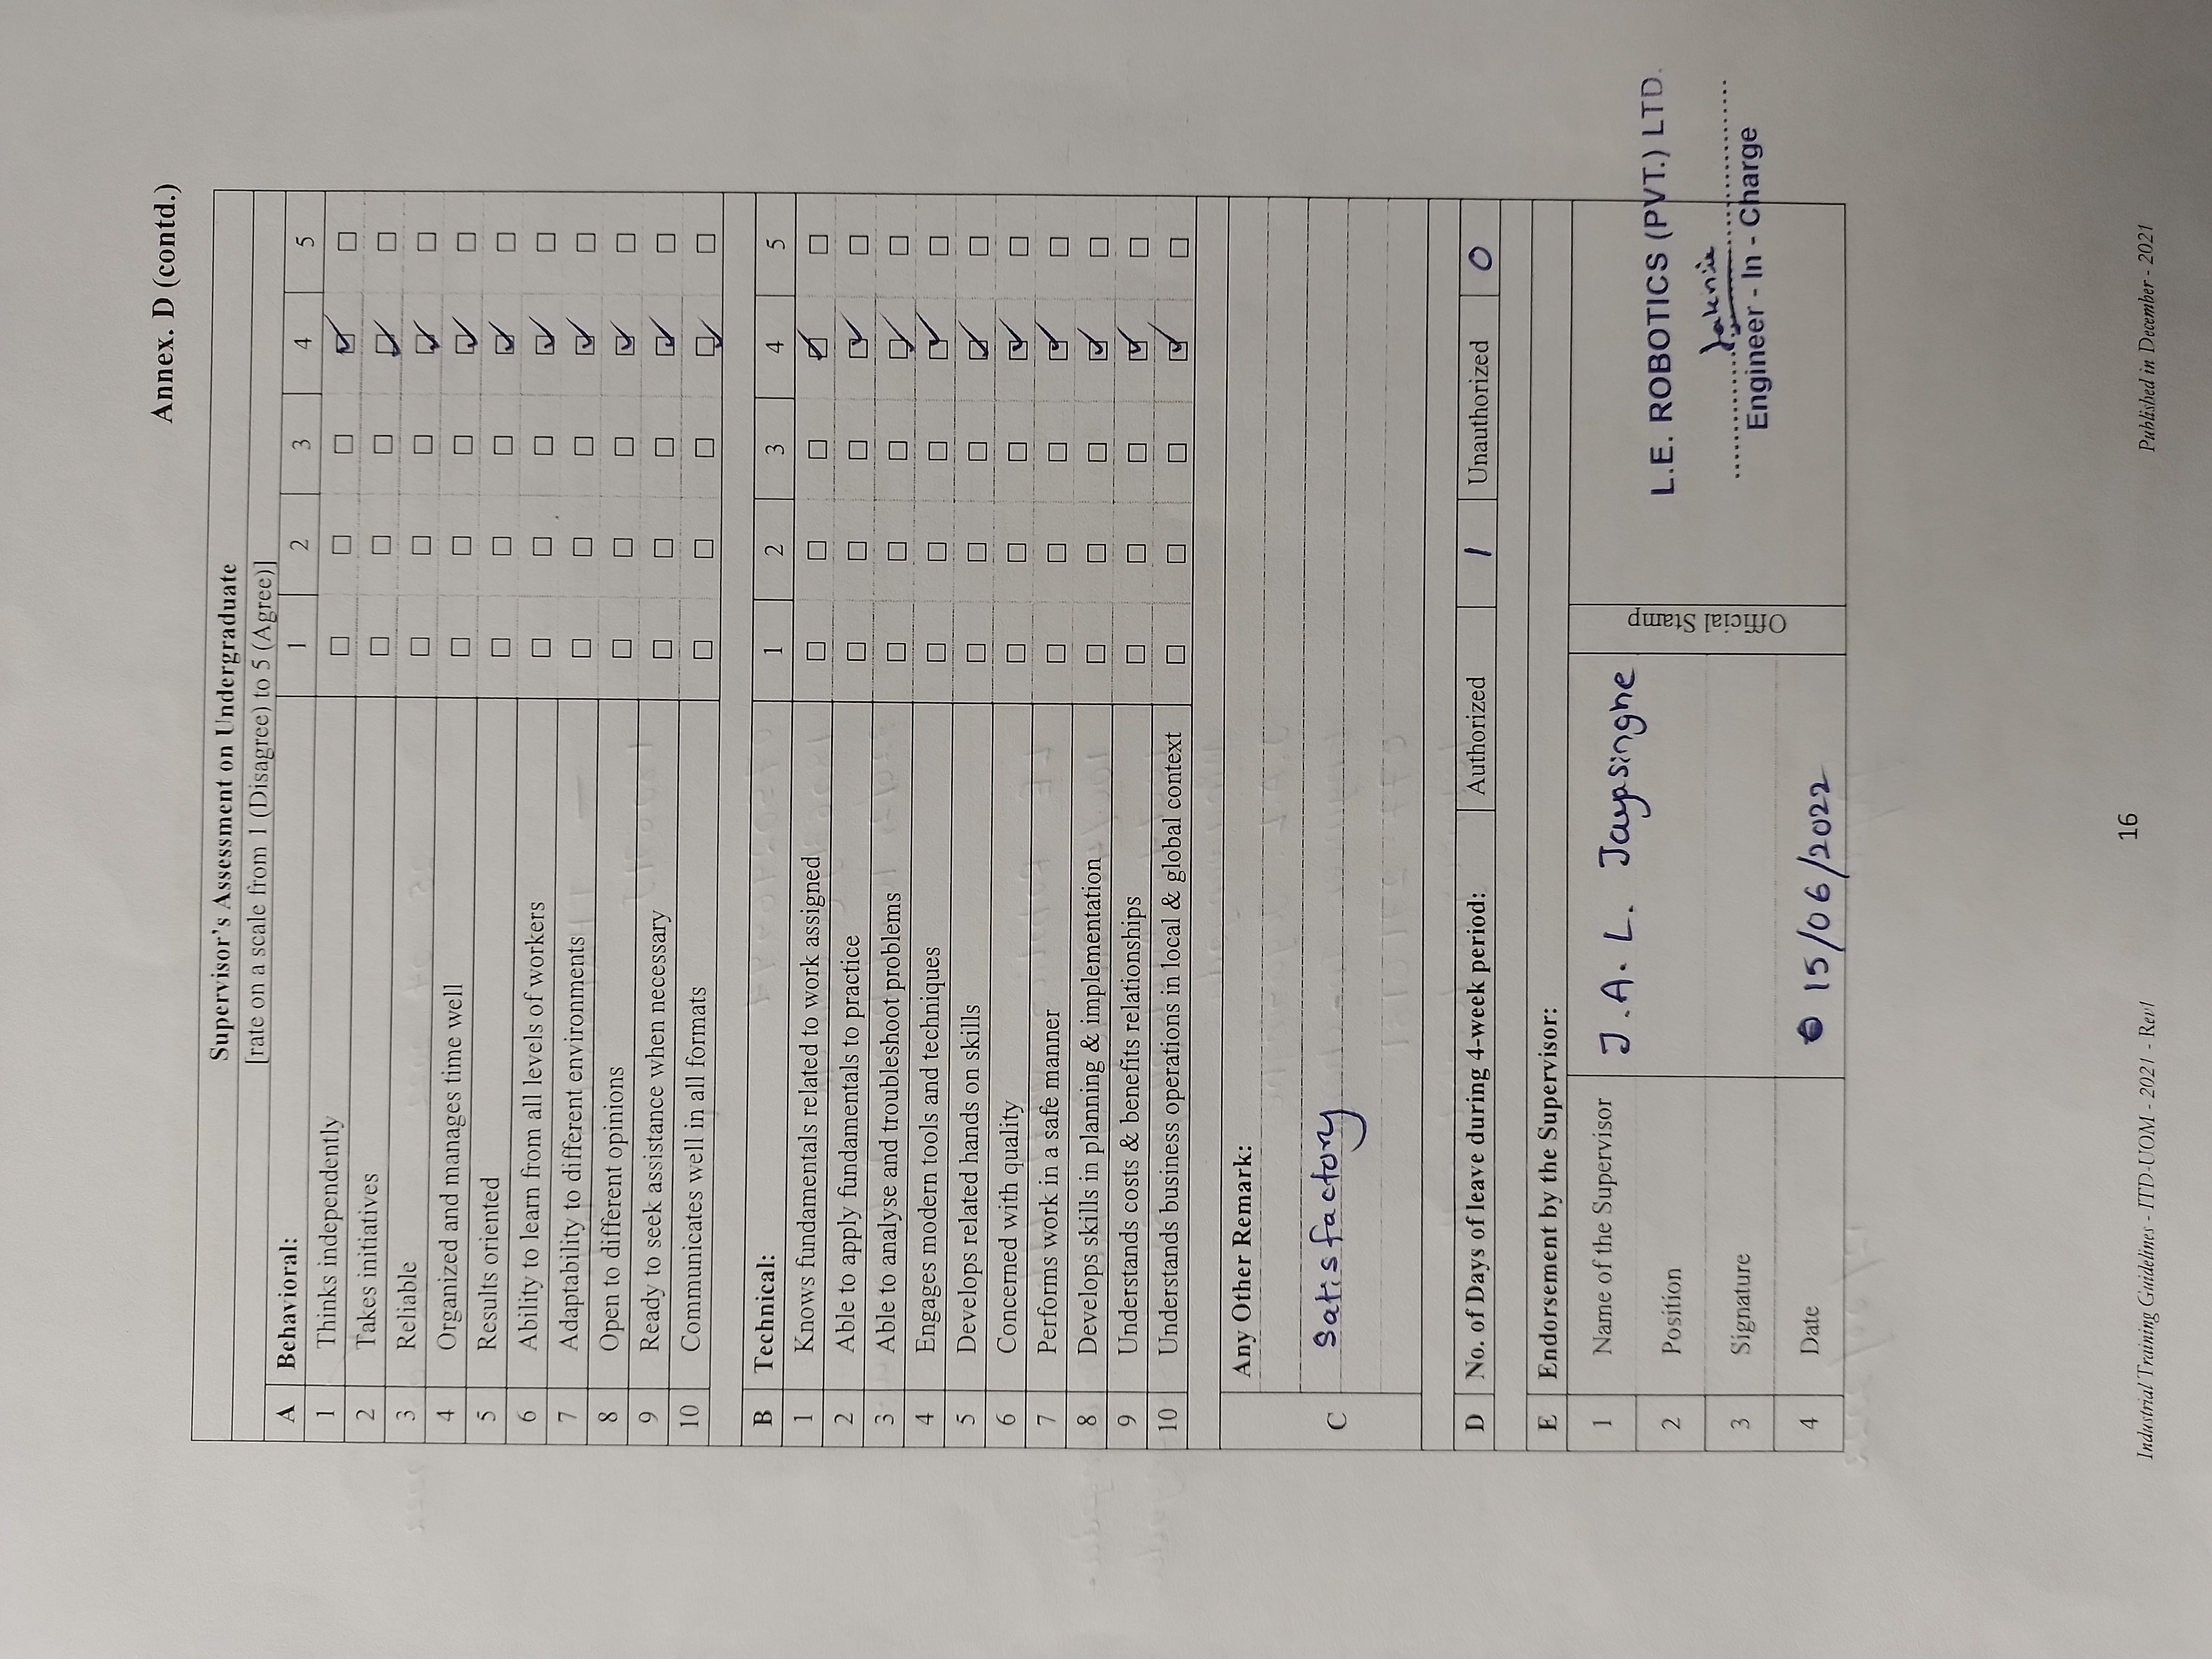 Annex. D (contd.)
Supervisor's Assessment on Undergraduate
[rate on a scale from 1 (Disagree) to 5 (Agree)]
A Behavioral: 1 2 3 4 5
1 Thinks independently ☐ ☐ ☐ ☑ ☐
2 Takes initiatives ☐ ☐ ☐ ☑ ☐
3 Reliable ☐ ☐ ☐ ☑ ☐
4 Organized and manages time well ☐ ☐ ☐ ☑ ☐
5 Results oriented ☐ ☐ ☐ ☑ ☐
6 Ability to learn from all levels of workers ☐ ☐ ☐ ☑ ☐
7 Adaptability to different environments ☐ ☐ ☐ ☑ ☐
8 Open to different opinions ☐ ☐ ☐ ☑ ☐
9 Ready to seek assistance when necessary ☐ ☐ ☐ ☑ ☐
10 Communicates well in all formats ☐ ☐ ☐ ☑ ☐
B Technical: 1 2 3 4 5
1 Knows fundamentals related to work assigned ☐ ☐ ☐ ☑ ☐
2 Able to apply fundamentals to practice ☐ ☐ ☐ ☑ ☐
3 Able to analyse and troubleshoot problems ☐ ☐ ☐ ☑ ☐
4 Engages modern tools and techniques ☐ ☐ ☐ ☑ ☐
5 Develops related hands on skills ☐ ☐ ☐ ☑ ☐
6 Concerned with quality ☐ ☐ ☐ ☑ ☐
7 Performs work in a safe manner ☐ ☐ ☐ ☑ ☐
8 Develops skills in planning & implementation ☐ ☐ ☐ ☑ ☐
9 Understands costs & benefits relationships ☐ ☐ ☐ ☑ ☐
10 Understands business operations in local & global context ☐ ☐ ☐ ☑ ☐
C Any Other Remark:
Satisfactory
D No. of Days of leave during 4-week period: Authorized 1 Unauthorized 0
E Endorsement by the Supervisor:
1 Name of the Supervisor J.A.L. Jayasinghe
2 Position
3 Signature
4 Date 15/06/2022
Official Stamp
L.E. ROBOTICS (PVT.) LTD.
Engineer - In - Charge
16
Industrial Training Guidelines - ITD-UOM - 2021 - Rev1
Published in December - 2021